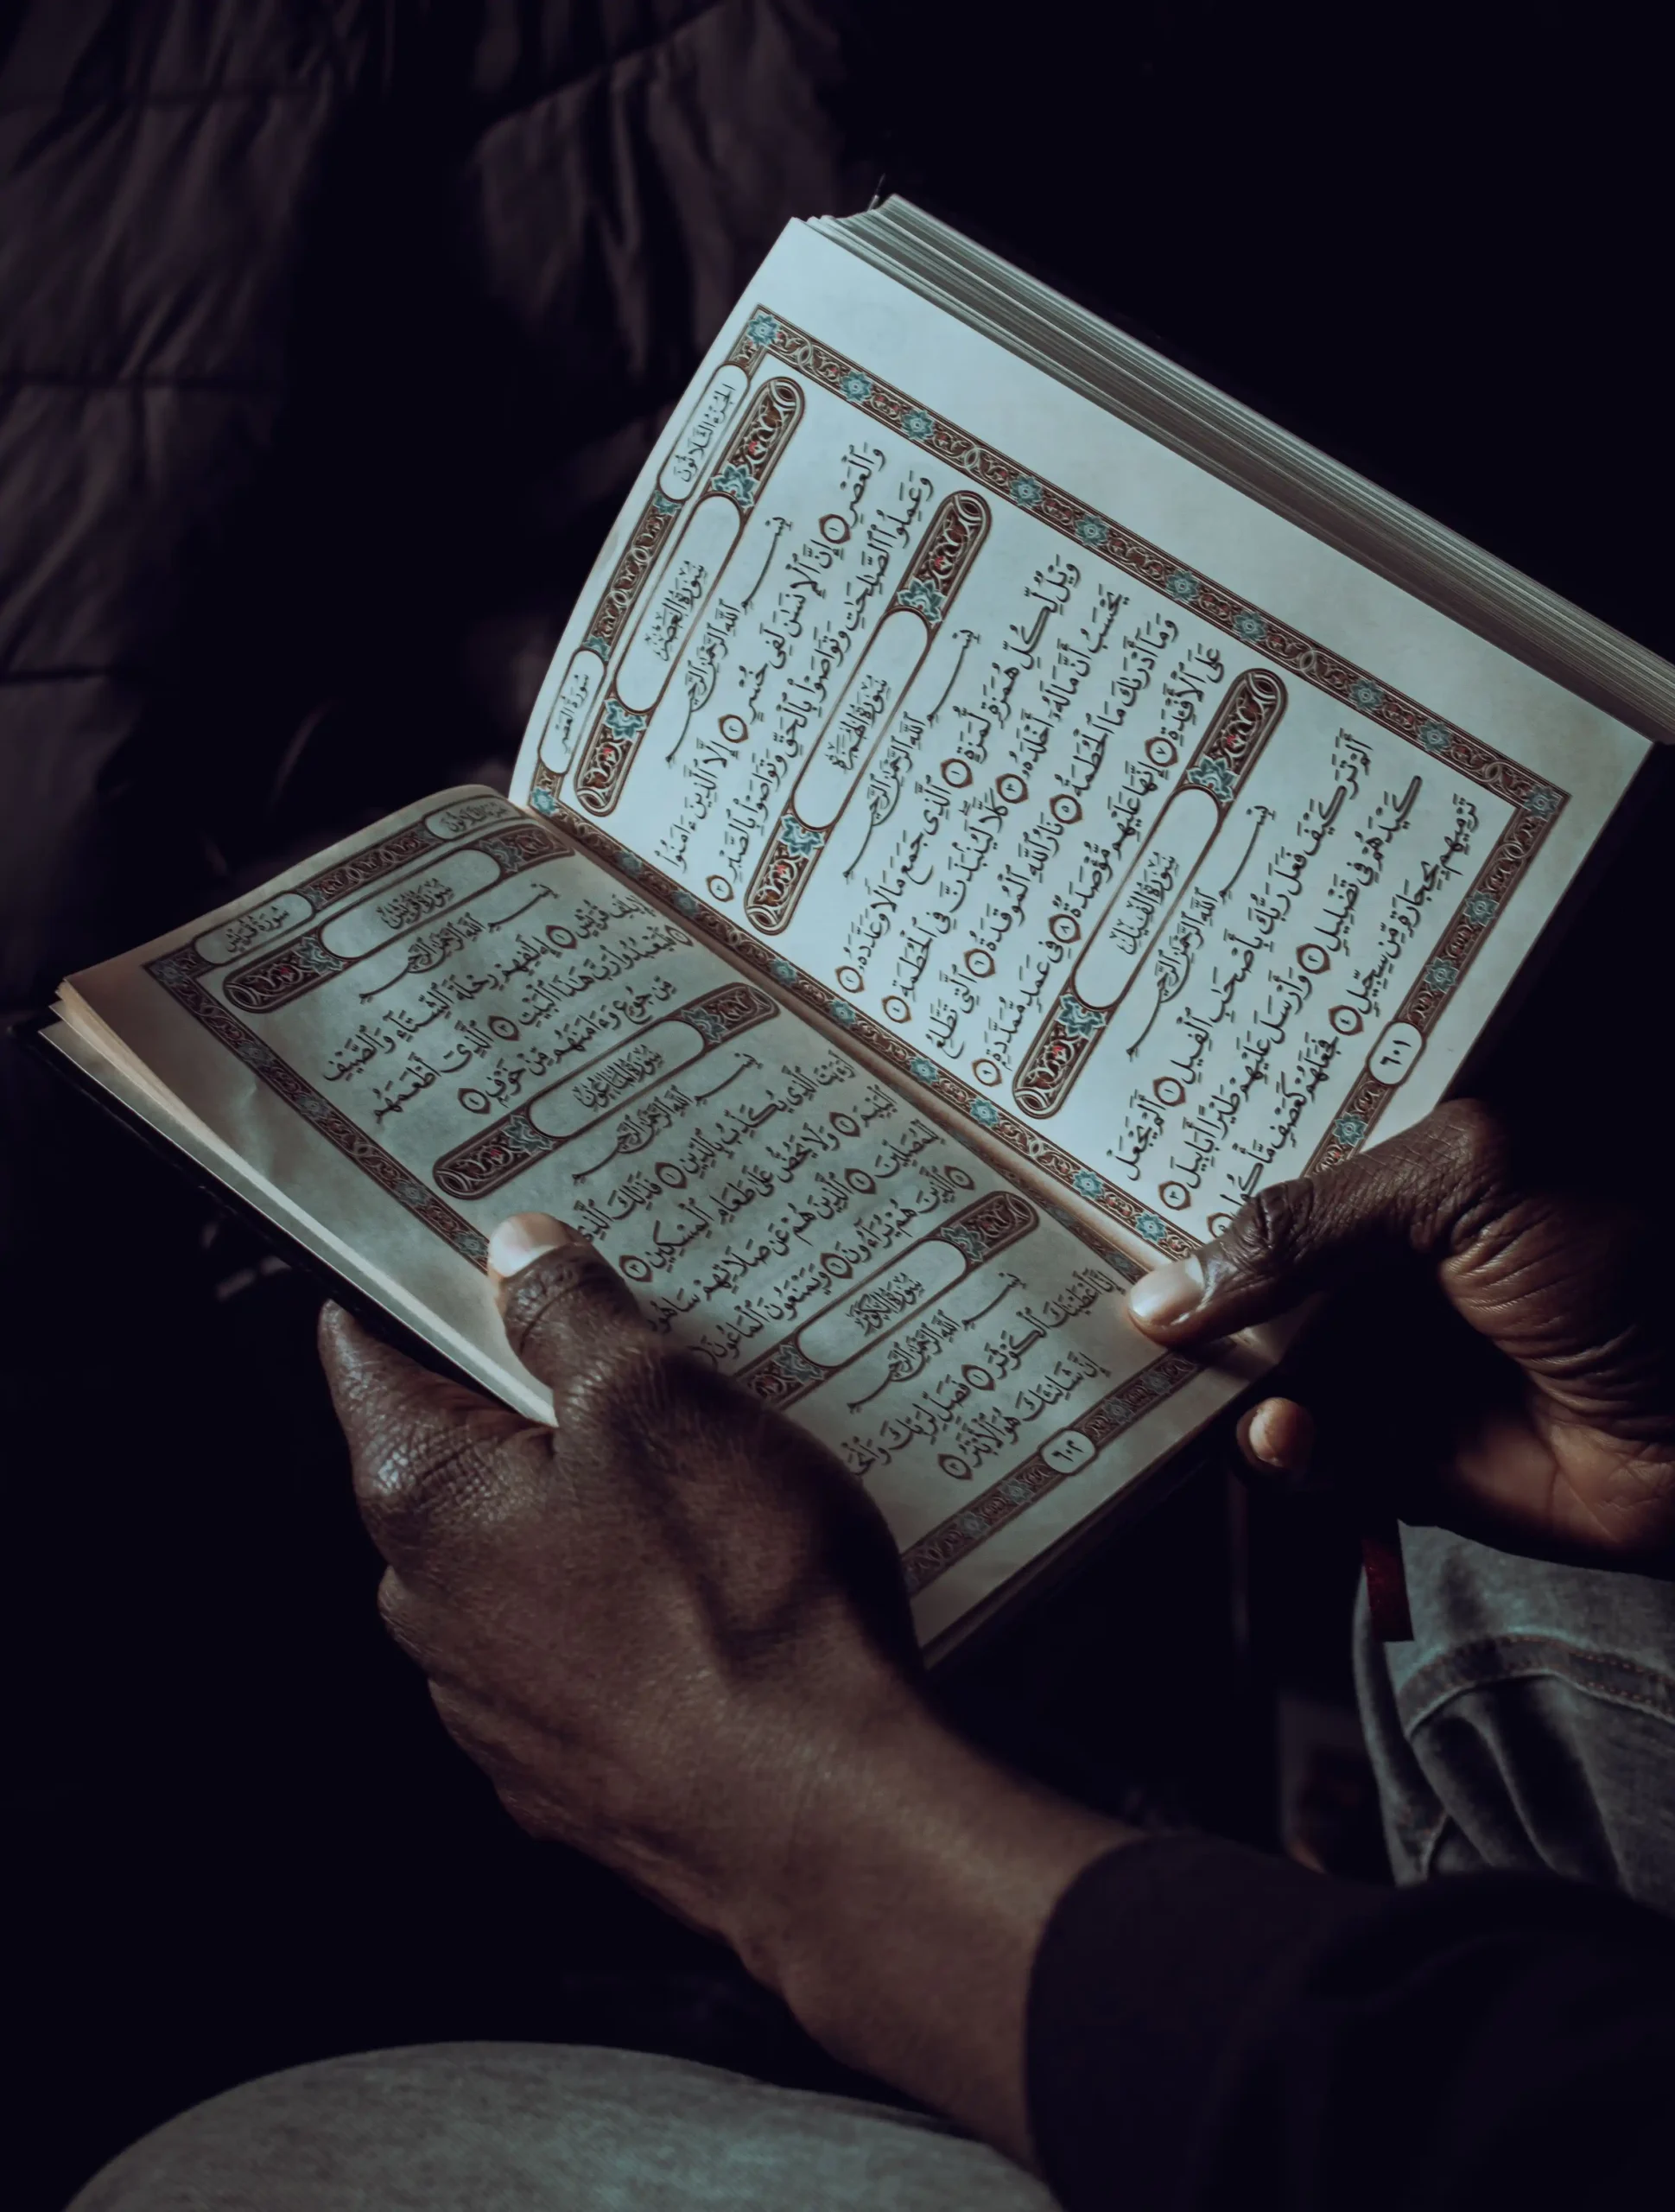 سورة العصر
الجزء الثلاثون
سورة العصر
بسم الله الرحمن الرحيم
وَٱلْعَصْرِ ١ إِنَّ ٱلْإِنسَٰنَ لَفِى خُسْرٍ ٢ إِلَّا ٱلَّذِينَ ءَامَنُوا۟
وَعَمِلُوا۟ ٱلصَّٰلِحَٰتِ وَتَوَاصَوْا۟ بِٱلْحَقِّ وَتَوَاصَوْا۟ بِٱلصَّبْرِ ٣
سورة الهمزة
بسم الله الرحمن الرحيم
وَيْلٌ لِّكُلِّ هُمَزَةٍ لُّمَزَةٍ ١ ٱلَّذِى جَمَعَ مَالًا وَعَدَّدَهُۥ ٢
يَحْسَبُ أَنَّ مَالَهُۥٓ أَخْلَدَهُۥ ٣ كَلَّا لَيُنۢبَذَنَّ فِى ٱلْحُطَمَةِ ٤
وَمَآ أَدْرَىٰكَ مَا ٱلْحُطَمَةُ ٥ نَارُ ٱللَّهِ ٱلْمُوقَدَةُ ٦ ٱلَّتِى تَطَّلِعُ
عَلَى ٱلْأَفْـِٔدَةِ ٧ إِنَّهَا عَلَيْهِم مُّؤْصَدَةٌ ٨ فِى عَمَدٍ مُّمَدَّدَةٍۭ ٩
سورة الفيل
بسم الله الرحمن الرحيم
أَلَمْ تَرَ كَيْفَ فَعَلَ رَبُّكَ بِأَصْحَٰبِ ٱلْفِيلِ ١ أَلَمْ يَجْعَلْ
كَيْدَهُمْ فِى تَضْلِيلٍ ٢ وَأَرْسَلَ عَلَيْهِمْ طَيْرًا أَبَابِيلَ ٣
تَرْمِيهِم بِحِجَارَةٍ مِّن سِجِّيلٍ ٤ فَجَعَلَهُمْ كَعَصْفٍ مَّأْكُولٍۭ
٦٠١
الجزء الثلاثون
سورة قريش
سورة قريش
بسم الله الرحمن الرحيم
لِإِيلَٰفِ قُرَيْشٍ ١ إِۦلَٰفِهِمْ رِحْلَةَ ٱلشِّتَآءِ وَٱلصَّيْفِ
فَلْيَعْبُدُوا۟ رَبَّ هَٰذَا ٱلْبَيْتِ ٣ ٱلَّذِىٓ أَطْعَمَهُم
مِّن جُوعٍ وَءَامَنَهُم مِّنْ خَوْفٍۭ ٤
سورة الماعون
بسم الله الرحمن الرحيم
أَرَءَيْتَ ٱلَّذِى يُكَذِّبُ بِٱلدِّينِ ١ فَذَٰلِكَ ٱلَّذِى
ٱلْيَتِيمَ ٢ وَلَا يَحُضُّ عَلَىٰ طَعَامِ ٱلْمِسْكِينِ ٣
لِّلْمُصَلِّينَ ٤ ٱلَّذِينَ هُمْ عَن صَلَاتِهِمْ سَاهُونَ
ٱلَّذِينَ هُمْ يُرَآءُونَ ٦ وَيَمْنَعُونَ ٱلْمَاعُونَ
سورة الكوثر
بسم الله الرحمن الرحيم
إِنَّآ أَعْطَيْنَٰكَ ٱلْكَوْثَرَ ١ فَصَلِّ لِرَبِّكَ
إِنَّ شَانِئَكَ هُوَ ٱلْأَبْتَرُ ٣
٦٠٢